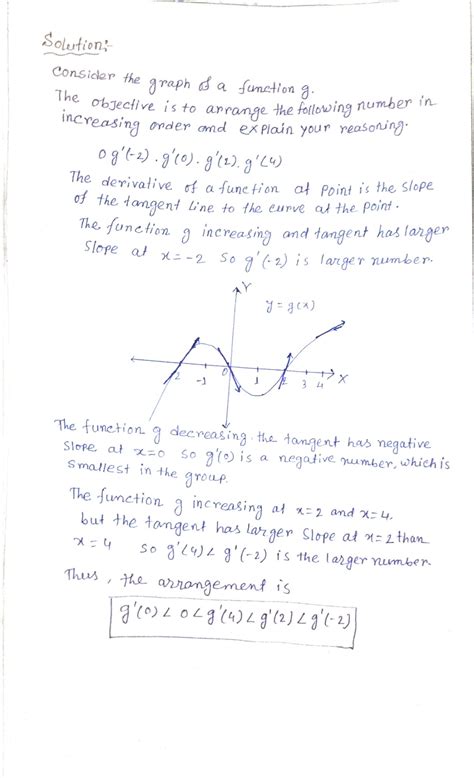 Solution:-
Consider the graph of a function g.
The objective is to arrange the following number in
increasing order and explain your reasoning.
0 g'(-2). g'(0). g'(2). g'(4)
The derivative of a function at point is the slope
of the tangent line to the curve at the point.
The function g increasing and tangent has larger
slope at x=-2 so g'(-2) is larger number.
Y
y = g(x)
-2 -1 0 1 2 3 4 X
The function g decreasing. the tangent has negative
slope at x=0 so g'(0) is a negative number, which is
smallest in the group.
The function g increasing at x=2 and x=4,
but the tangent has larger slope at x=2 than
x=4 so g'(4) < g'(-2) is the larger number.
Thus, the arrangement is
g'(0) < 0 < g'(4) < g'(2) < g'(-2)